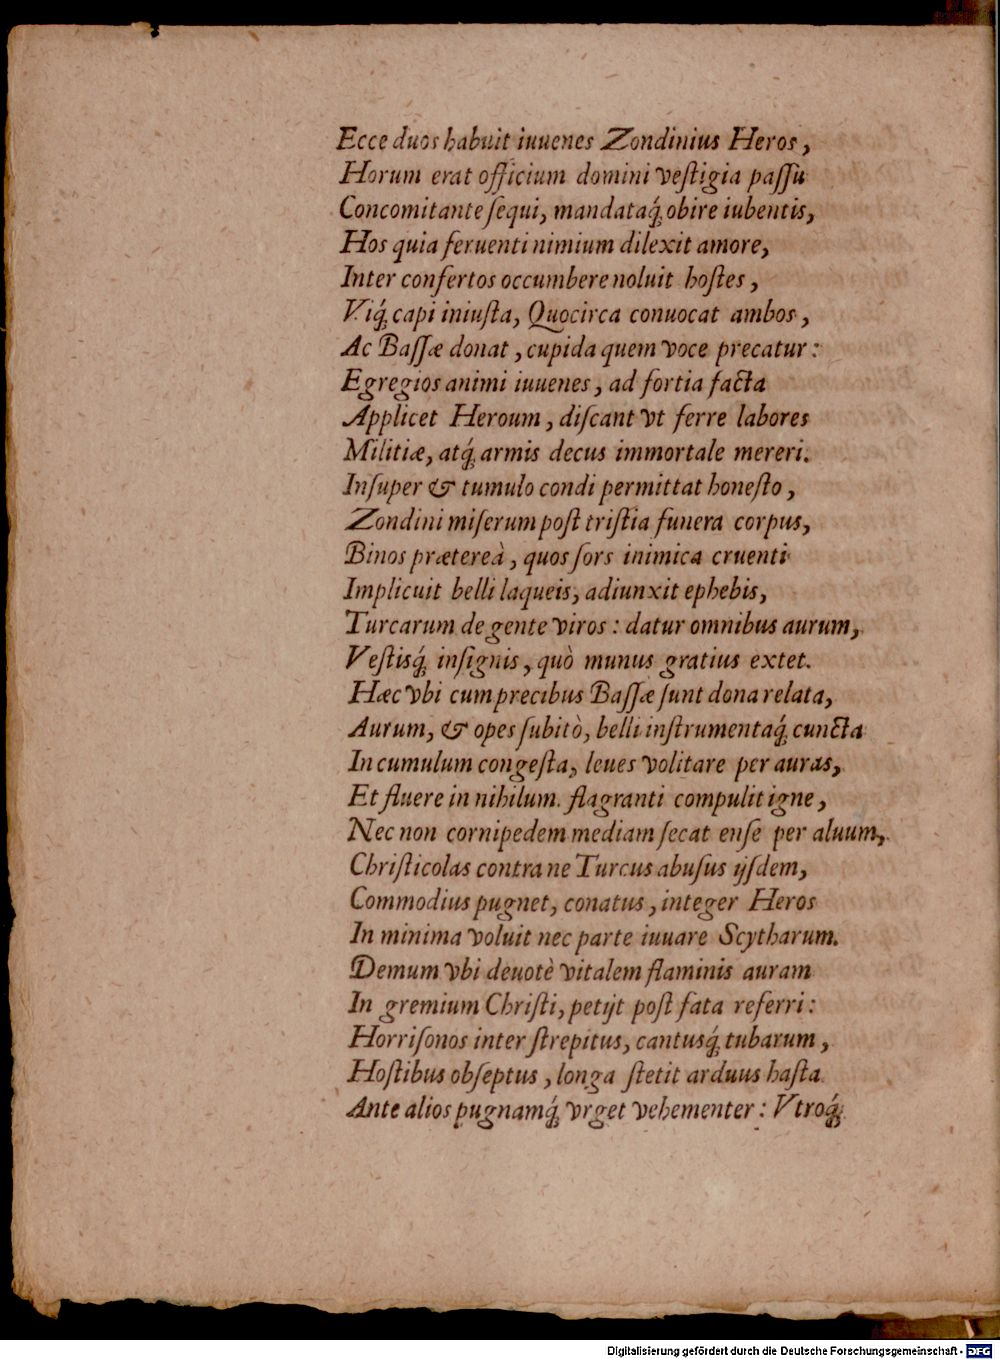 Ecce duos habuit iuuenes Zondinius Heros,
Horum erat officium domini veſtigia paſſu
Concomitante ſequi, mandataq́; obire iubentis,
Hos quia feruenti nimium dilexit amore,
Inter confertos occumbere noluit hoſtes,
Viq́; capi iniuſta, Quocirca conuocat ambos,
Ac Baſſæ donat, cupida quem voce precatur:
Egregios animi iuuenes, ad fortia facta
Applicet Heroum, diſcant vt ferre labores
Militiæ, atq́; armis decus immortale mereri.
Inſuper & tumulo condi permittat honeſto,
Zondini miſerum poſt triſtia funera corpus,
Binos prætereà, quos ſors inimica cruenti
Implicuit belli laqueis, adiunxit ephebis,
Turcarum de gente viros: datur omnibus aurum,
Veſtisq́; inſignis, quò munus gratius extet.
Hæc vbi cum precibus Baſſæ ſunt dona relata,
Aurum, & opes ſubitò, belli inſtrumentaq́; cuncta
In cumulum congeſta, leues volitare per auras,
Et fluere in nihilum. flagranti compulit igne,
Nec non cornipedem mediam ſecat enſe per aluum,
Chriſticolas contra ne Turcus abuſus ijſdem,
Commodius pugnet, conatus, integer Heros
In minima voluit nec parte iuuare Scytharum.
Demum vbi deuotè vitalem flaminis auram
In gremium Chriſti, petijt poſt fata referri:
Horriſonos inter ſtrepitus, cantusq́; tubarum,
Hoſtibus obſeptus, longa ſtetit arduus haſta
Ante alios pugnamq́; vrget vehementer: Vtroq́;
Digitalisierung gefördert durch die Deutsche Forschungsgemeinschaft - DFG